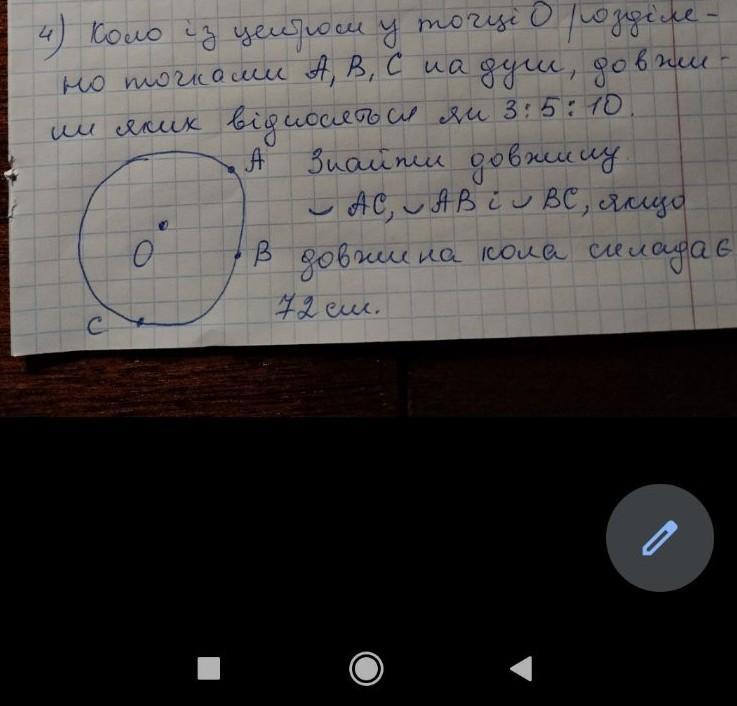 4) Коло із центром у точці О розділе-
но точками А, В, С на дуги, довжи-
ни яких відносяться як 3:5:10.
А Знайти довжину
◡ АС, ◡ АВ і ◡ ВС, якщо
О В довжина кола складає
С 72 см.